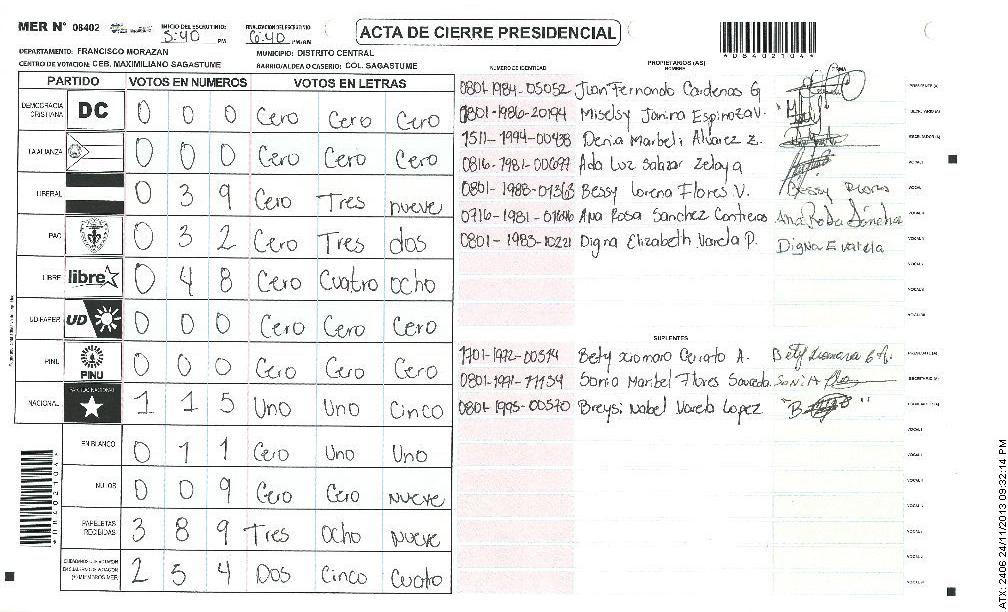 MER N° 08402 INICIO DEL ESCRUTINIO 5:40 PM FINALIZACION DEL ESCRUTINIO 6:40 PM/AM ACTA DE CIERRE PRESIDENCIAL
DEPARTAMENTO: FRANCISCO MORAZAN MUNICIPIO: DISTRITO CENTRAL
CENTRO DE VOTACION: CEB. MAXIMILIANO SAGASTUME BARRIO/ALDEA O CASERIO: COL. SAGASTUME
PARTIDO VOTOS EN NUMEROS VOTOS EN LETRAS
DEMOCRACIA CRISTIANA DC 0 0 0 Cero Cero Cero
LA ALIANZA 0 0 0 Cero Cero Cero
LIBERAL 0 3 9 Cero Tres nueve
PAC 0 3 2 Cero Tres dos
LIBRE libre 0 4 8 Cero Cuatro ocho
UD UD 0 0 0 Cero Cero Cero
PINU PINU 0 0 0 Cero Cero Cero
NACIONAL PARTIDO NACIONAL 1 1 5 Uno Uno Cinco
EN BLANCO 0 1 1 Cero Uno Uno
NULOS 0 0 9 Cero Cero Nueve
PAPELETAS RECIBIDAS 3 8 9 Tres Ocho Nueve
2 5 4 Dos Cinco Cuatro
NUMERO DE IDENTIDAD PROPIETARIOS (AS) NOMBRE FIRMA
0801-1984-05052 Juan Fernando Cardenas G PRESIDENTE (A)
0801-1986-20194 Miselsy Janina Espinoza V. SECRETARIO (A)
1511-1994-00438 Denia Marbeli Alvarez Z. ESCRUTADOR (A)
Ada Luz Salazar Zelaya VOCAL I
Bessy Lorena Flores V. Bessy Flores VOCAL
Ana Rosa Sanchez Contreras Ana Rosa Sánchez VOCAL
0801-1983-10221 Digna Elizabeth Varela P. Digna E Varela VOCAL
SUPLENTES
1701-1972-00514 Bety Xiomara Cerrato A. Bety Xiomara PRESIDENTE (A)
Sonia Maribel Flores Sauceda. Sonia SECRETARIO (A)
0801-1995-00570 Breysi Nabel Varela Lopez
*08402104*
*08402104*
ATX: 2406 24/11/2013 09:32:14 PM